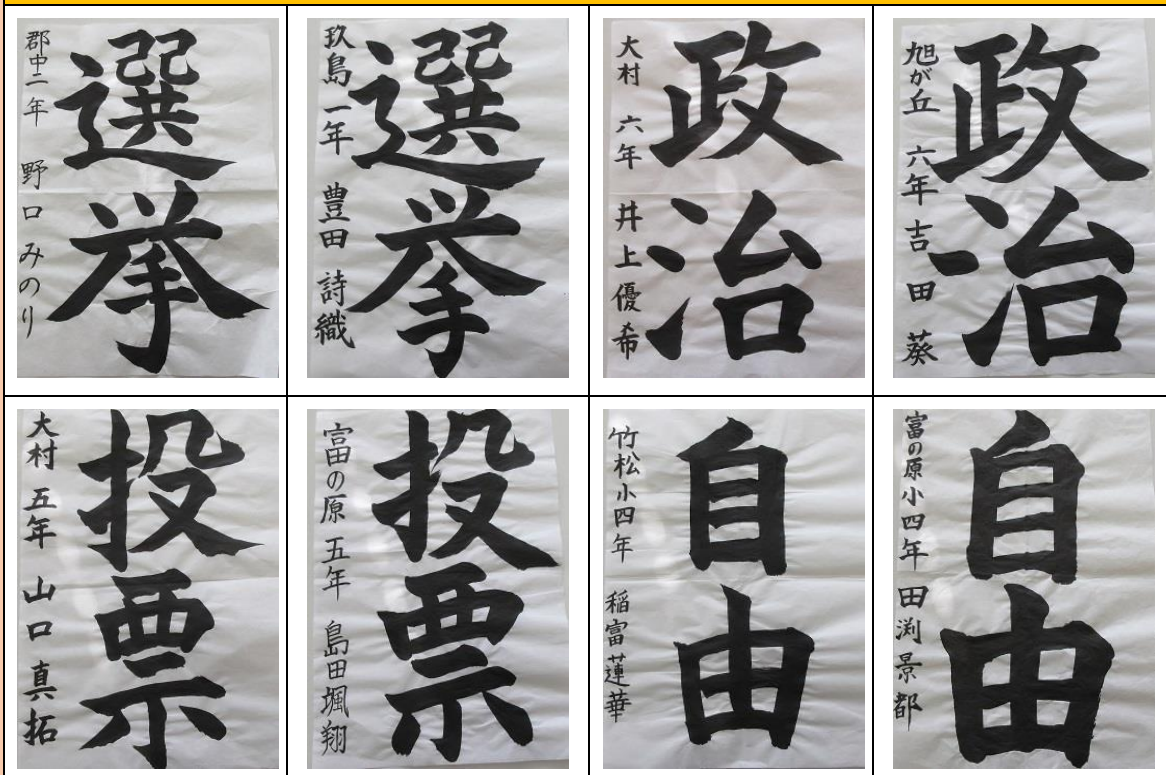 選挙
郡中二年 野口みのり
選挙
玖島一年 豊田 詩織
政治
大村 六年 井上優希
政治
旭が丘 六年 吉田 葵
投票
大村 五年 山口 真拓
投票
富の原 五年 島田颯翔
自由
竹松小四年 稲富蓮華
自由
富の原小四年 田渕景都